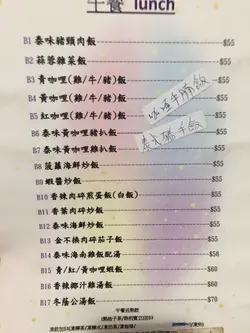 午餐 lunch
B1 泰味豬頸肉飯 $55
B2 蒜蓉雜菜飯 $55
B3 黃咖哩(雞/牛/豬)飯 $55
B4 黃咖哩(雞/牛/豬)飯 $55
B5 紅咖哩(雞/牛/豬)飯 $55
B6 泰味黃咖哩豬扒飯 $55
B7 泰味黃咖哩雞扒飯 $55
B8 菠蘿海鮮炒飯 $55
B9 蝦醬炒飯 $55
B10 香辣肉碎煎蛋飯(白飯) $55
B11 香葉肉碎炒飯 $55
B12 泰味海鮮炒飯 $55
B13 金不換肉碎茄子飯 $55
B14 泰味海南雞飯配湯 $56
B15 青/紅/黃咖哩蝦飯 $60
B16 香辣椰汁雞湯飯 $60
B17 冬蔭公湯飯 $70